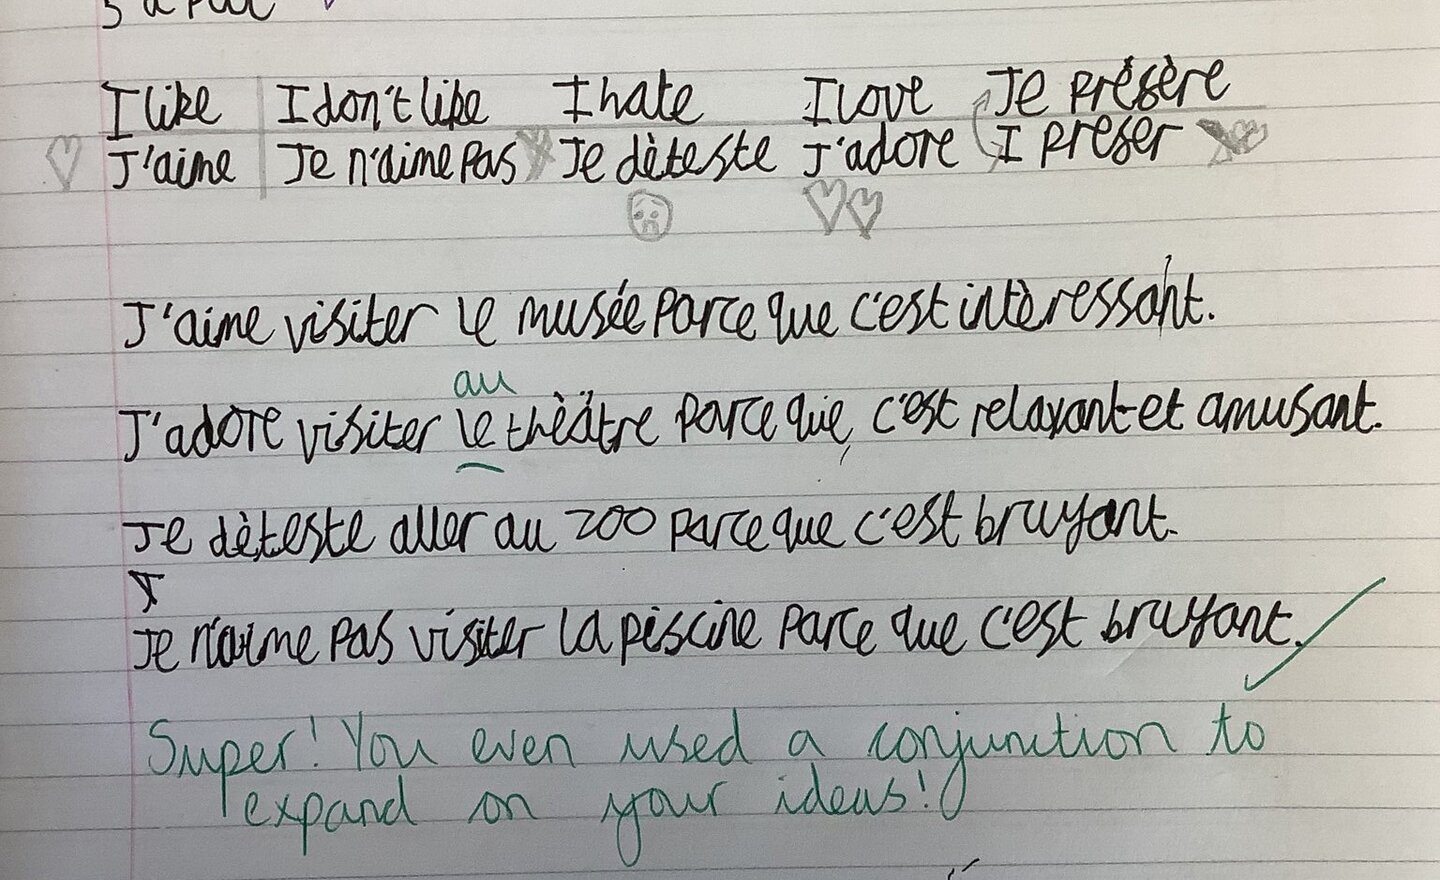 I like I don't like I hate I love Je préfère
J'aime Je n'aime pas Je dèteste J'adore I prefer
J'aime visiter le musée parce que c'est intèressant.
au
J'adore visiter le thèâtre parce que, c'est relaxant et amusant.
Je dèteste aller au zoo parce que c'est bruyant.
Je n'aime pas visiter la piscine parce que c'est bruyant.
Super! You even used a conjunction to
expand on your ideas!